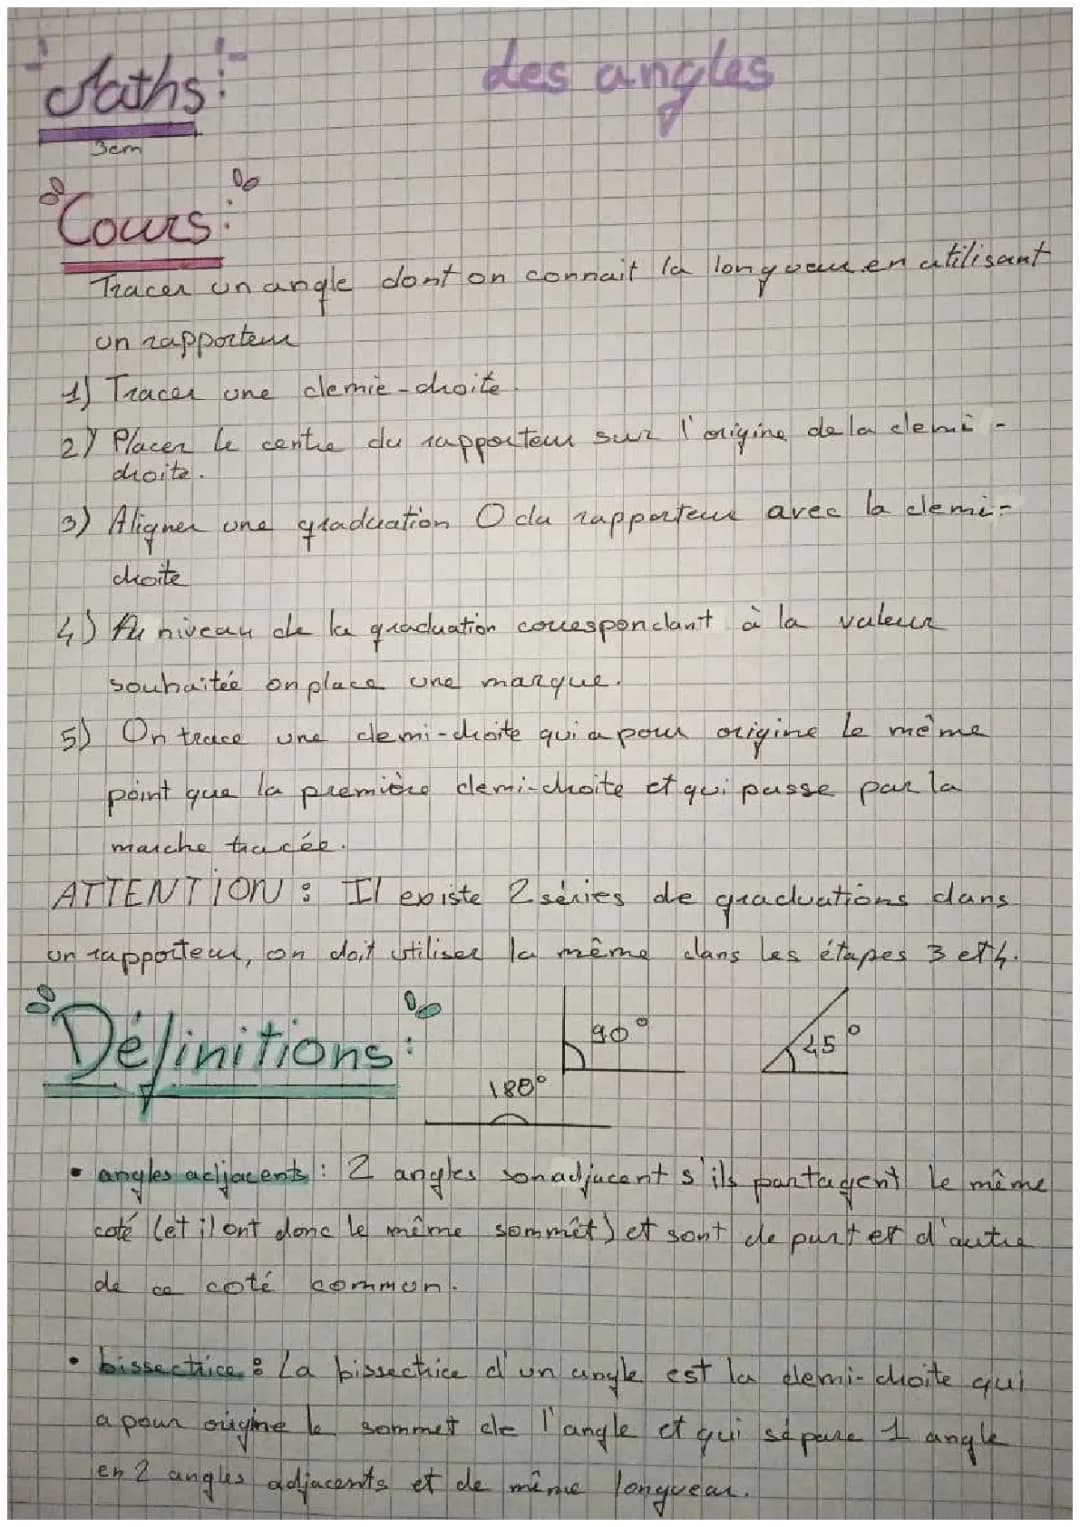 Maths:
des angles
3cm
Cours:
Tracer un angle dont on connait la longueur en utilisant
un rapporteur
1) Tracer une demie-droite.
2) Placer le centre du rapporteur sur l'origine de la demi-
droite.
3) Aligner une graduation 0 du rapporteur avec la demi-
droite
4) Au niveau de la graduation correspondant à la valeur
souhaitée on place une marque.
5) On trace une demi-droite qui a pour origine le même
point que la première demi-droite et qui passe par la
marche tracée.
ATTENTION : Il existe 2 séries de graduations dans
un rapporteur, on doit utiliser la même dans les étapes 3 et 4.
Définitions:
90°
45°
180°
• angles adjacents : 2 angles son adjacent s'ils partagent le même
coté (et il ont donc le même sommêt) et sont de part et d'autre
de ce coté commun.
• bissectrice : La bissectrice d'un angle est la demi-droite qui
a pour origine le sommet de l'angle et qui sépare 1 angle
en 2 angles adjacents et de même longueur.